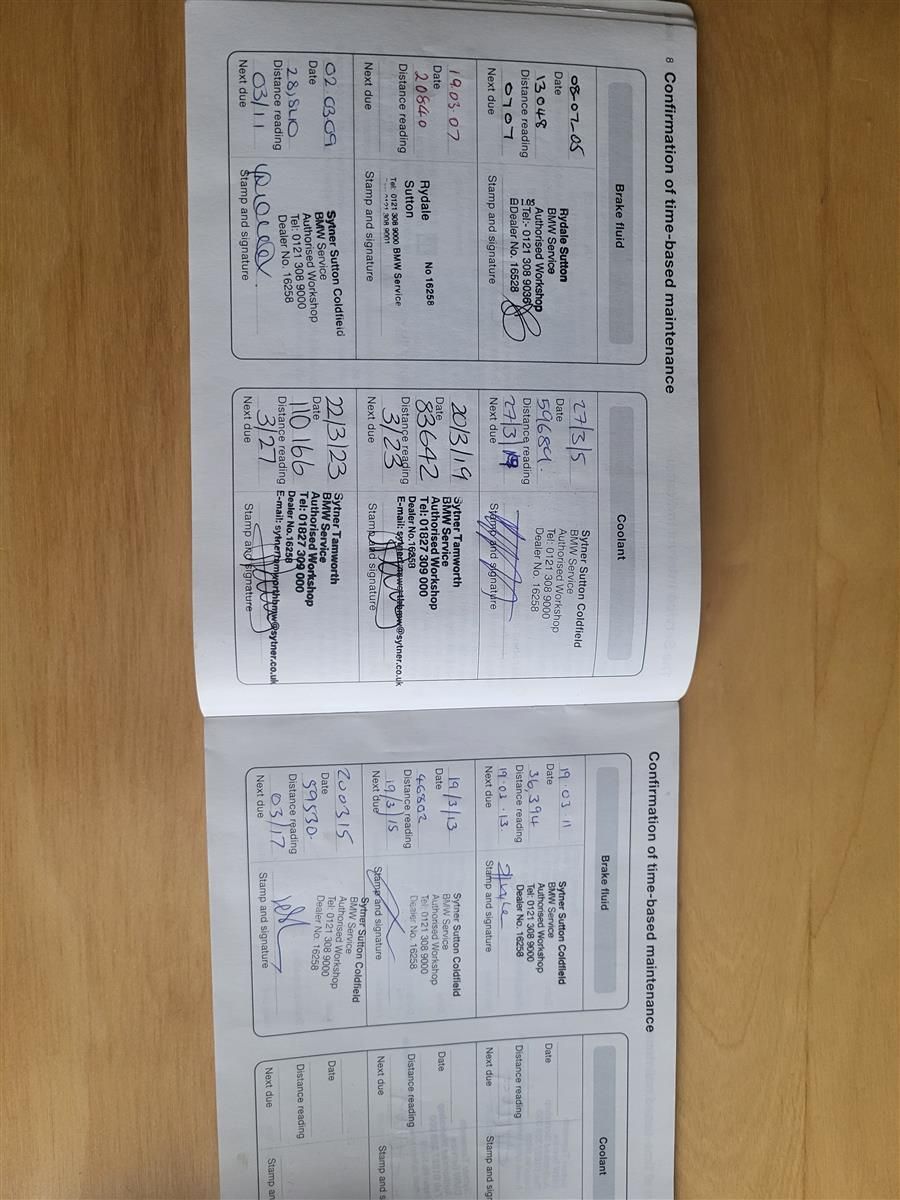 8 Confirmation of time-based maintenance
Brake fluid
08-07-05
Date
13048
Distance reading
0707
Next due
Rydale Sutton
BMW Service
Authorised Workshop
Tel:- 0121 308 9036
Dealer No. 16528
Stamp and signature
19.03.07
Date
20640
Distance reading
Next due
Rydale
Sutton
No 16258
Tel: 0121 308 9000 BMW Service
0121 308 9001
Stamp and signature
02.03.09
Date
28,840
Distance reading
03/11
Next due
Sytner Sutton Coldfield
BMW Service
Authorised Workshop
Tel: 0121 308 9000
Dealer No. 16258
Stamp and signature
Coolant
27/3/5
Date
59689.
Distance reading
27/3/19
Next due
Sytner Sutton Coldfield
BMW Service
Authorised Workshop
Tel: 0121 308 9000
Dealer No. 16258
Stamp and signature
20/3/19
Date
83642
Distance reading
3/23
Next due
Sytner Tamworth
BMW Service
Authorised Workshop
Tel: 01827 309 000
Dealer No.16258
E-mail: sytnertamworthbmw@sytner.co.uk
Stamp and signature
22/3/23
Date
110166
Distance reading
3/27
Next due
Sytner Tamworth
BMW Service
Authorised Workshop
Tel: 01827 309 000
Dealer No.16258
E-mail: sytnertamworthbmw@sytner.co.uk
Stamp and signature
Confirmation of time-based maintenance
Brake fluid
19.03.11
Date
36,394
Distance reading
19.03.13.
Next due
Sytner Sutton Coldfield
BMW Service
Authorised Workshop
Tel: 0121 308 9000
Dealer No. 16258
Stamp and signature
19/3/13
Date
46802
Distance reading
19/3/15
Next due
Sytner Sutton Coldfield
BMW Service
Authorised Workshop
Tel: 0121 308 9000
Dealer No. 16258
Stamp and signature
200315
Date
59530.
Distance reading
03/17
Next due
Sytner Sutton Coldfield
BMW Service
Authorised Workshop
Tel: 0121 308 9000
Dealer No. 16258
Stamp and signature
Coolant
Date
Distance reading
Next due
Stamp and sig
Date
Distance reading
Next due
Stamp and s
Date
Distance reading
Next due
Stamp an